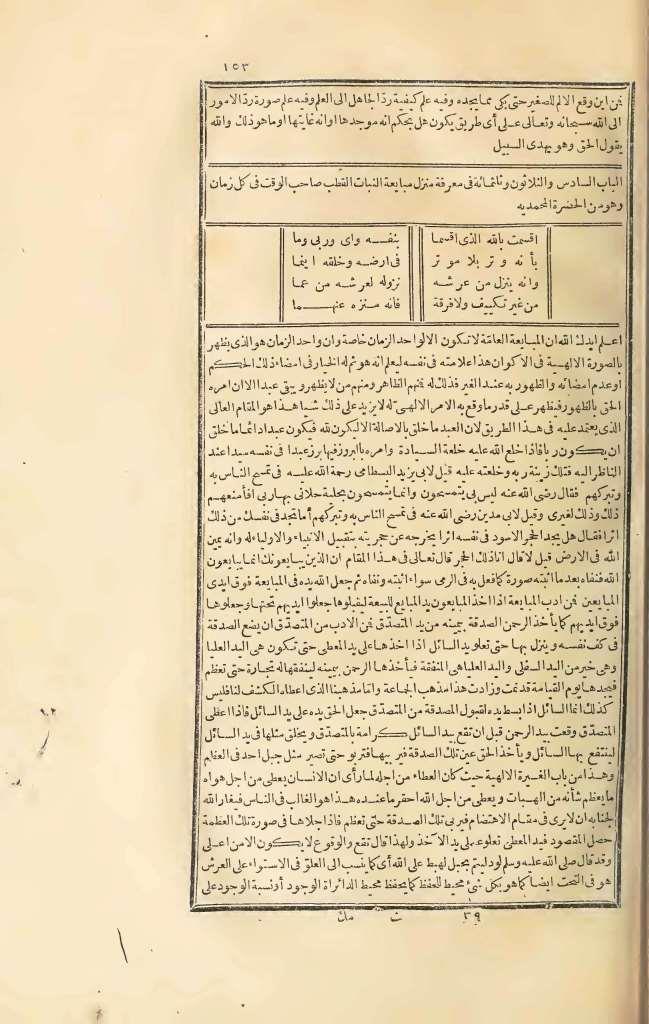 ١٥٣
فمن اين وقع الالم للصغير حتى يبكى مما يجده وفيه علم كيفية ردّ الجاهل الى العلم وفيه علم صورة ردّ الامور
الى الله سبحانه وتعالى على أى طريق يكون هل بحكم انه موجدها او انه غايتها او ما هو ذلك والله
يقول الحق وهو يهدى السبيل
الباب السادس والثلاثون وثلثمائة فى معرفة منزل مبايعة النبات القطب صاحب الوقت فى كل زمان
وهو من الحضرة المحمدية
اقسمت بالله الذى اقسما بنفسه واى وربى وما
بأنه وتر بلا موتر فى ارضه وخلقه اينما
وانه ينزل من عرشه نزوله لعرشه من عما
من غير تكييف ولا فرقة فانه منزه عنهما
اعلم ايدك الله ان المبايعة العامّة لا تكون الا لواحد الزمان خاصة وان واحد الزمان هو الذى يظهر
بالصورة الالهية فى الاكوان هذا علامته فى نفسه ليعلم انه هو ثم له الخيار فى امضاء ذلك الحكم
او عدم امضائه والظهور به عند الغير فذلك له فمنهم الظاهر ومنهم من لا يظهر ويبقى عبدا الا ان امره
الحق بالظهور فيظهر على قدر ما وقع به الامر الالهىّ له لا يزيد على ذلك شيأ هذا هو المقام العالى
الذى يعتمد عليه فى هذا الطريق لان العبد ما خلق بالاصالة الا ليكون لله فيكون عبدا دائما ما خلق
ان يكون ربا فاذا خلع الله عليه خلعة السيادة وامره بالبروز فيها برز عبدا فى نفسه سيدا عند
الناظر اليه فتلك زينة ربه وخلعته عليه قيل لابى يزيد البسطامى رحمة الله عليه فى تمسح الناس به
وتبركهم فقال رضى الله عنه ليس بى يتمسحون وانما يتمسحون بحلية حلانى بها ربى أفأمنعهم
ذلك وذلك لغيرى وقيل لابى مدين رضى الله عنه فى تمسح الناس به وتبركهم أما تجد فى نفسك من ذلك
اثرا فقال هل يجد الحجر الاسود فى نفسه اثرا يخرجه عن حجريته بتقبيل الانبياء والاولياء له وانه يمين
الله فى الارض قيل لا قال انا ذلك الحجر قال تعالى فى هذا المقام ان الذين يبايعونك انما يبايعون
الله فنفاه بعد ما اثبته صورة كما فعل به فى الرمى سواء اثبته ونفاه ثم جعل الله يده فى المبايعة فوق ايدى
المبايعين فمن ادب المبايعة اذا اخذ المبايعون يد المبايع للبيعة ليقبلوها جعلوا ايديهم تحتها وجعلوها
فوق ايديهم كما يأخذ الرحمن الصدقة بيمينه من يد المتصدّق فمن الادب من المتصدّق ان يضع الصدقة
فى كف نفسه وينزل بها حتى تعلو يد السائل اذا اخذها على يد المعطى حتى تكون هى اليد العليا
وهى خير من اليد السفلى واليد العليا هى المنفقة فيأخذها الرحمن بيمينه لينفقها له تجارة حتى تعظم
فيجدها يوم القيامة قد نمت وزادت هذا مذهب الجماعة وامّا مذهبنا الذى اعطاه الكشف لنا فليس
كذلك انما السائل اذا بسط يده لقبول الصدقة من المتصدّق جعل الحق يده على يد السائل فاذا اعطى
المتصدّق وقعت بيد الرحمن قبل ان تقع بيد السائل كرامة بالمتصدّق ويخلق مثلها فى يد السائل
لينتفع بها السائل ويأخذ الحق عين تلك الصدقة فيربيها فتربو حتى تصير مثل جبل احد فى العظم
وهذا من باب الغيرة الالهية حيث كان العطاء من اجله لما رأى ان الانسان يعطى من اجل هواه
ما يعظم شأنه من الهبات ويعطى من اجل الله احقر ما عنده هذا هو الغالب فى الناس فيغار الله
لجنابه ان لا يرى فى مقام الاهتضام فيربى تلك الصدقة حتى تعظم فاذا جلاها فى صورة تلك العظمة
احصل المقصود فيد المعطى تعلو على يد الآخذ ولهذا قال تقع والوقوع لا يكون الا من اعلى
وقد قال صلى الله عليه وسلم لو دليتم بحبل لهبط على الله أى كما ينسب الى العلوّ فى الاستواء على العرش
هو فى التحت ايضا كما هو بكل شئ محيط للحفظ كما يحفظ محيط الدائرة الوجود أو نسبة الوجود على
٣٩ ت مك